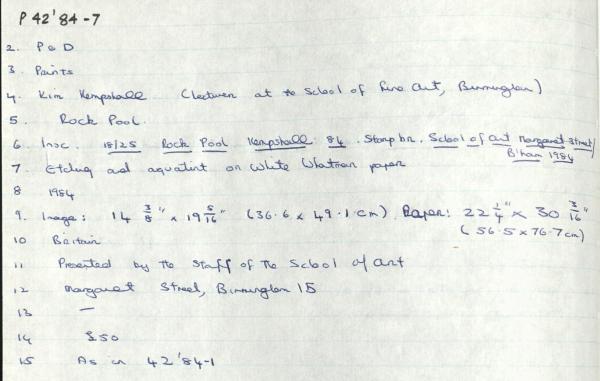 P 42'84-7
2. P & D
3 Prints
4. Kim Kempshall (Lecturer at the School of Fine Art, Birmingham)
5. Rock Pool.
6. Insc. 18/25 Rock Pool Kempshall 84. Stamp br. School of Art Margaret Street/
B'ham 1984
7. Etching and aquatint on White Whatman paper
8 1984
9. Image: 14 3/8" x 19 5/16" (36.6 x 49.1 cm) Paper: 22 1/4" x 30 3/16"
(56.5 x 76.7 cm)
10 Britain
11 Presented by the Staff of the School of Art
12 Margaret Street, Birmingham
13 —
14 £50
15 As in 42'84-1